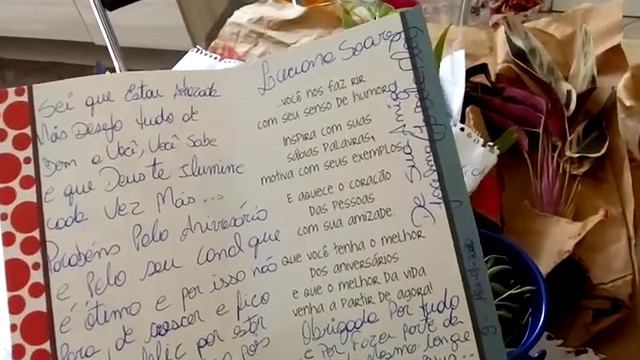 Sei que Estou Atrazada
Mas Desejo tudo de
Bom a Você, Você Sabe
e que Deus te Ilumine
cada Vez Mas...
Parabéns Pelo Aniversário
e Pelo seu Canal que
é ótimo e por isso não
Para, de crescer e fico
feliz por estar
pois
Luciana Soares
...você nos faz rir
com seu senso de humor,
inspira com suas
sábias palavras,
motiva com seus exemplos
e aquece o coração
das pessoas
com sua amizade.
que você tenha o melhor
dos aniversários
e que o melhor da vida
venha a partir de agora!
Obrigada Por tudo
e por fazer parte da
mesmo longe
De Sua Amiga